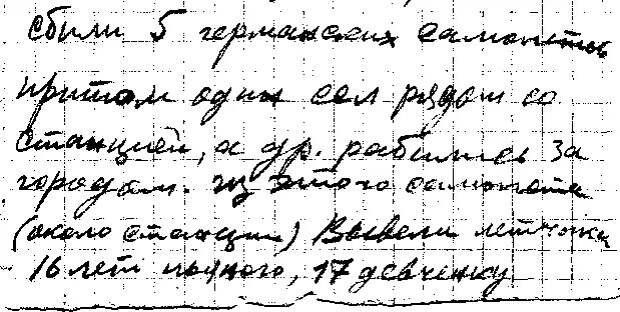 сбили 5 германских самолетов
притом один сел рядом со
станцией, а др. рабились за
городом. из этого самолета
(около станции) Вывели летчика
16 лет пьяного, 17 девченку